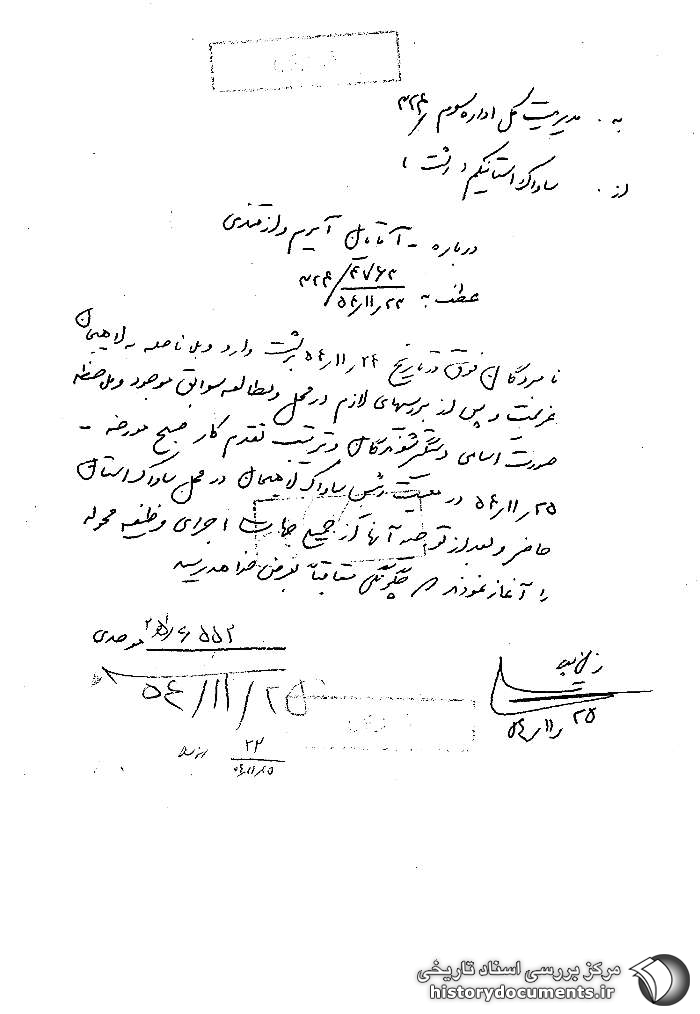 به. مدیریت کل اداره سوم ۳۲۴
از. ساواک استان یکم (رشت)
درباره - آقایان آیرم و ارقندی
عطف به ۳۲۴/
۵۴/۱۱/۲۳
نامبردگان فوق در تاریخ ۵۴/۱۱/۲۴ برشت وارد و بلافاصله به لاهیجان
عزیمت و پس از بررسیهای لازم در محل و مطالعه سوابق موجود و ملاحظه
صورت اسامی دستگیرشوندگان و ترتیب تقدم کار صبح مورخه -
۵۴/۱۱/۲۵ در معیت رئیس ساواک لاهیجان در محل ساواک استان
حاضر و بعد از توجیه آنها از جمیع جهات اجرای وظیفه محوله
را آغاز نمودند چگونگی متعاقباً بعرض خواهد رسید
۵۴/۱۱/۲۵
۵۴/۱۱/۲۵
۲۲
۵۴/۱۱/۲۵
مرکز بررسی اسناد تاریخی
historydocuments.ir